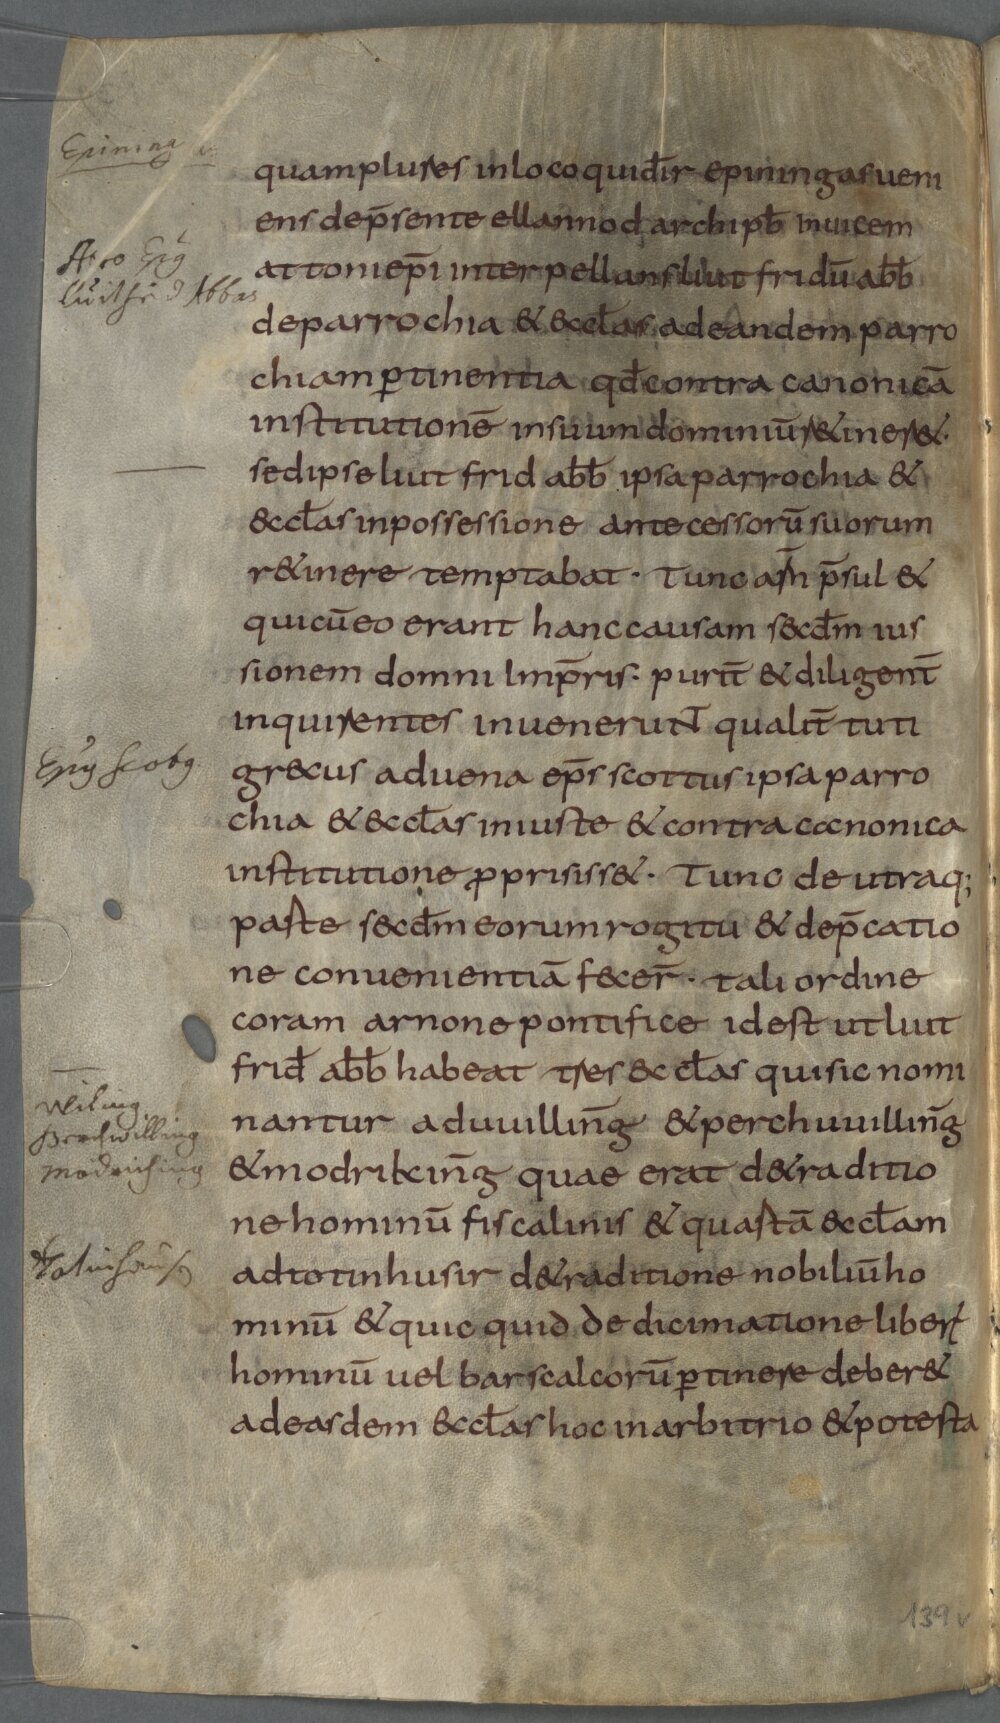 Epininga
quamplures inloco quid̄r epiningas ueni
ens dep̄sente ellannod archip̄b inuicem
Atto Ep̄s
attoni ep̄i interpellans liut fridū ab̄b
Liuitfrid Abbas
deparrochia & eccl̄as adeandem parro
chiam ꝑtinentia qd̄ contra canonicā
institutionē insuum dominiū r&iner&·
sedipse liut frid ab̄b ipsa parrochia &
&ccl̄as inpossessione antecessorū suorum
r&inere temptabat· Tunc arn̄ p̄sul &
quicū eo erant hanc causam secd̄m ius
sionem domni Imp̄ris· purit̄ & diligent̄
inquirentes inueneruNT qualit̄ tuti
Ep̄s scotg.
grecus aduena ep̄s scottus ipsa parro
chia & &ccl̄as iniuste & contra canonica
institutione ꝓprisiss&· Tunc de utraq;
parte secd̄m eorum rogitu & dep̄catio
ne conuenientiā fecer̄· tali ordine
coram arnone pontifice idest ut liut
frid̄ ab̄b habeat tres &ccl̄as qui sic nomi
Wiling.
nantur aduuilliñg & perchuuilliñg
Perchwilling
Modriching
& modrikiñg quae erat d& raditio
ne hominū fiscalinis & quartā &ccl̄am
Totinhausn
adtotinhusir d& raditione nobiliū ho
minū & quic quid de dicimatione libert
hominū uel barscalcorū ꝑtinere deber&
adeasdem &ccl̄as hoc inarbitrio & potesta
139 v